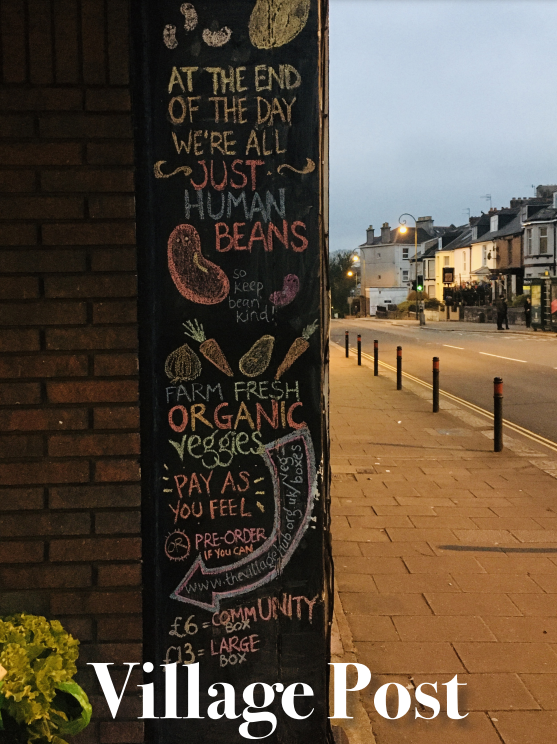 AT THE END
OF THE DAY
WE'RE ALL
JUST
HUMAN
BEANS
so
keep
bean
kind!
FARM FRESH
ORGANIC
veggies
PAY AS
YOU FEEL
OR
PRE-ORDER
IF YOU CAN
www.thevillagehub.org.uk/veg
boxes
£6 = COMMUNITY
BOX
£13 = LARGE
BOX
Village Post